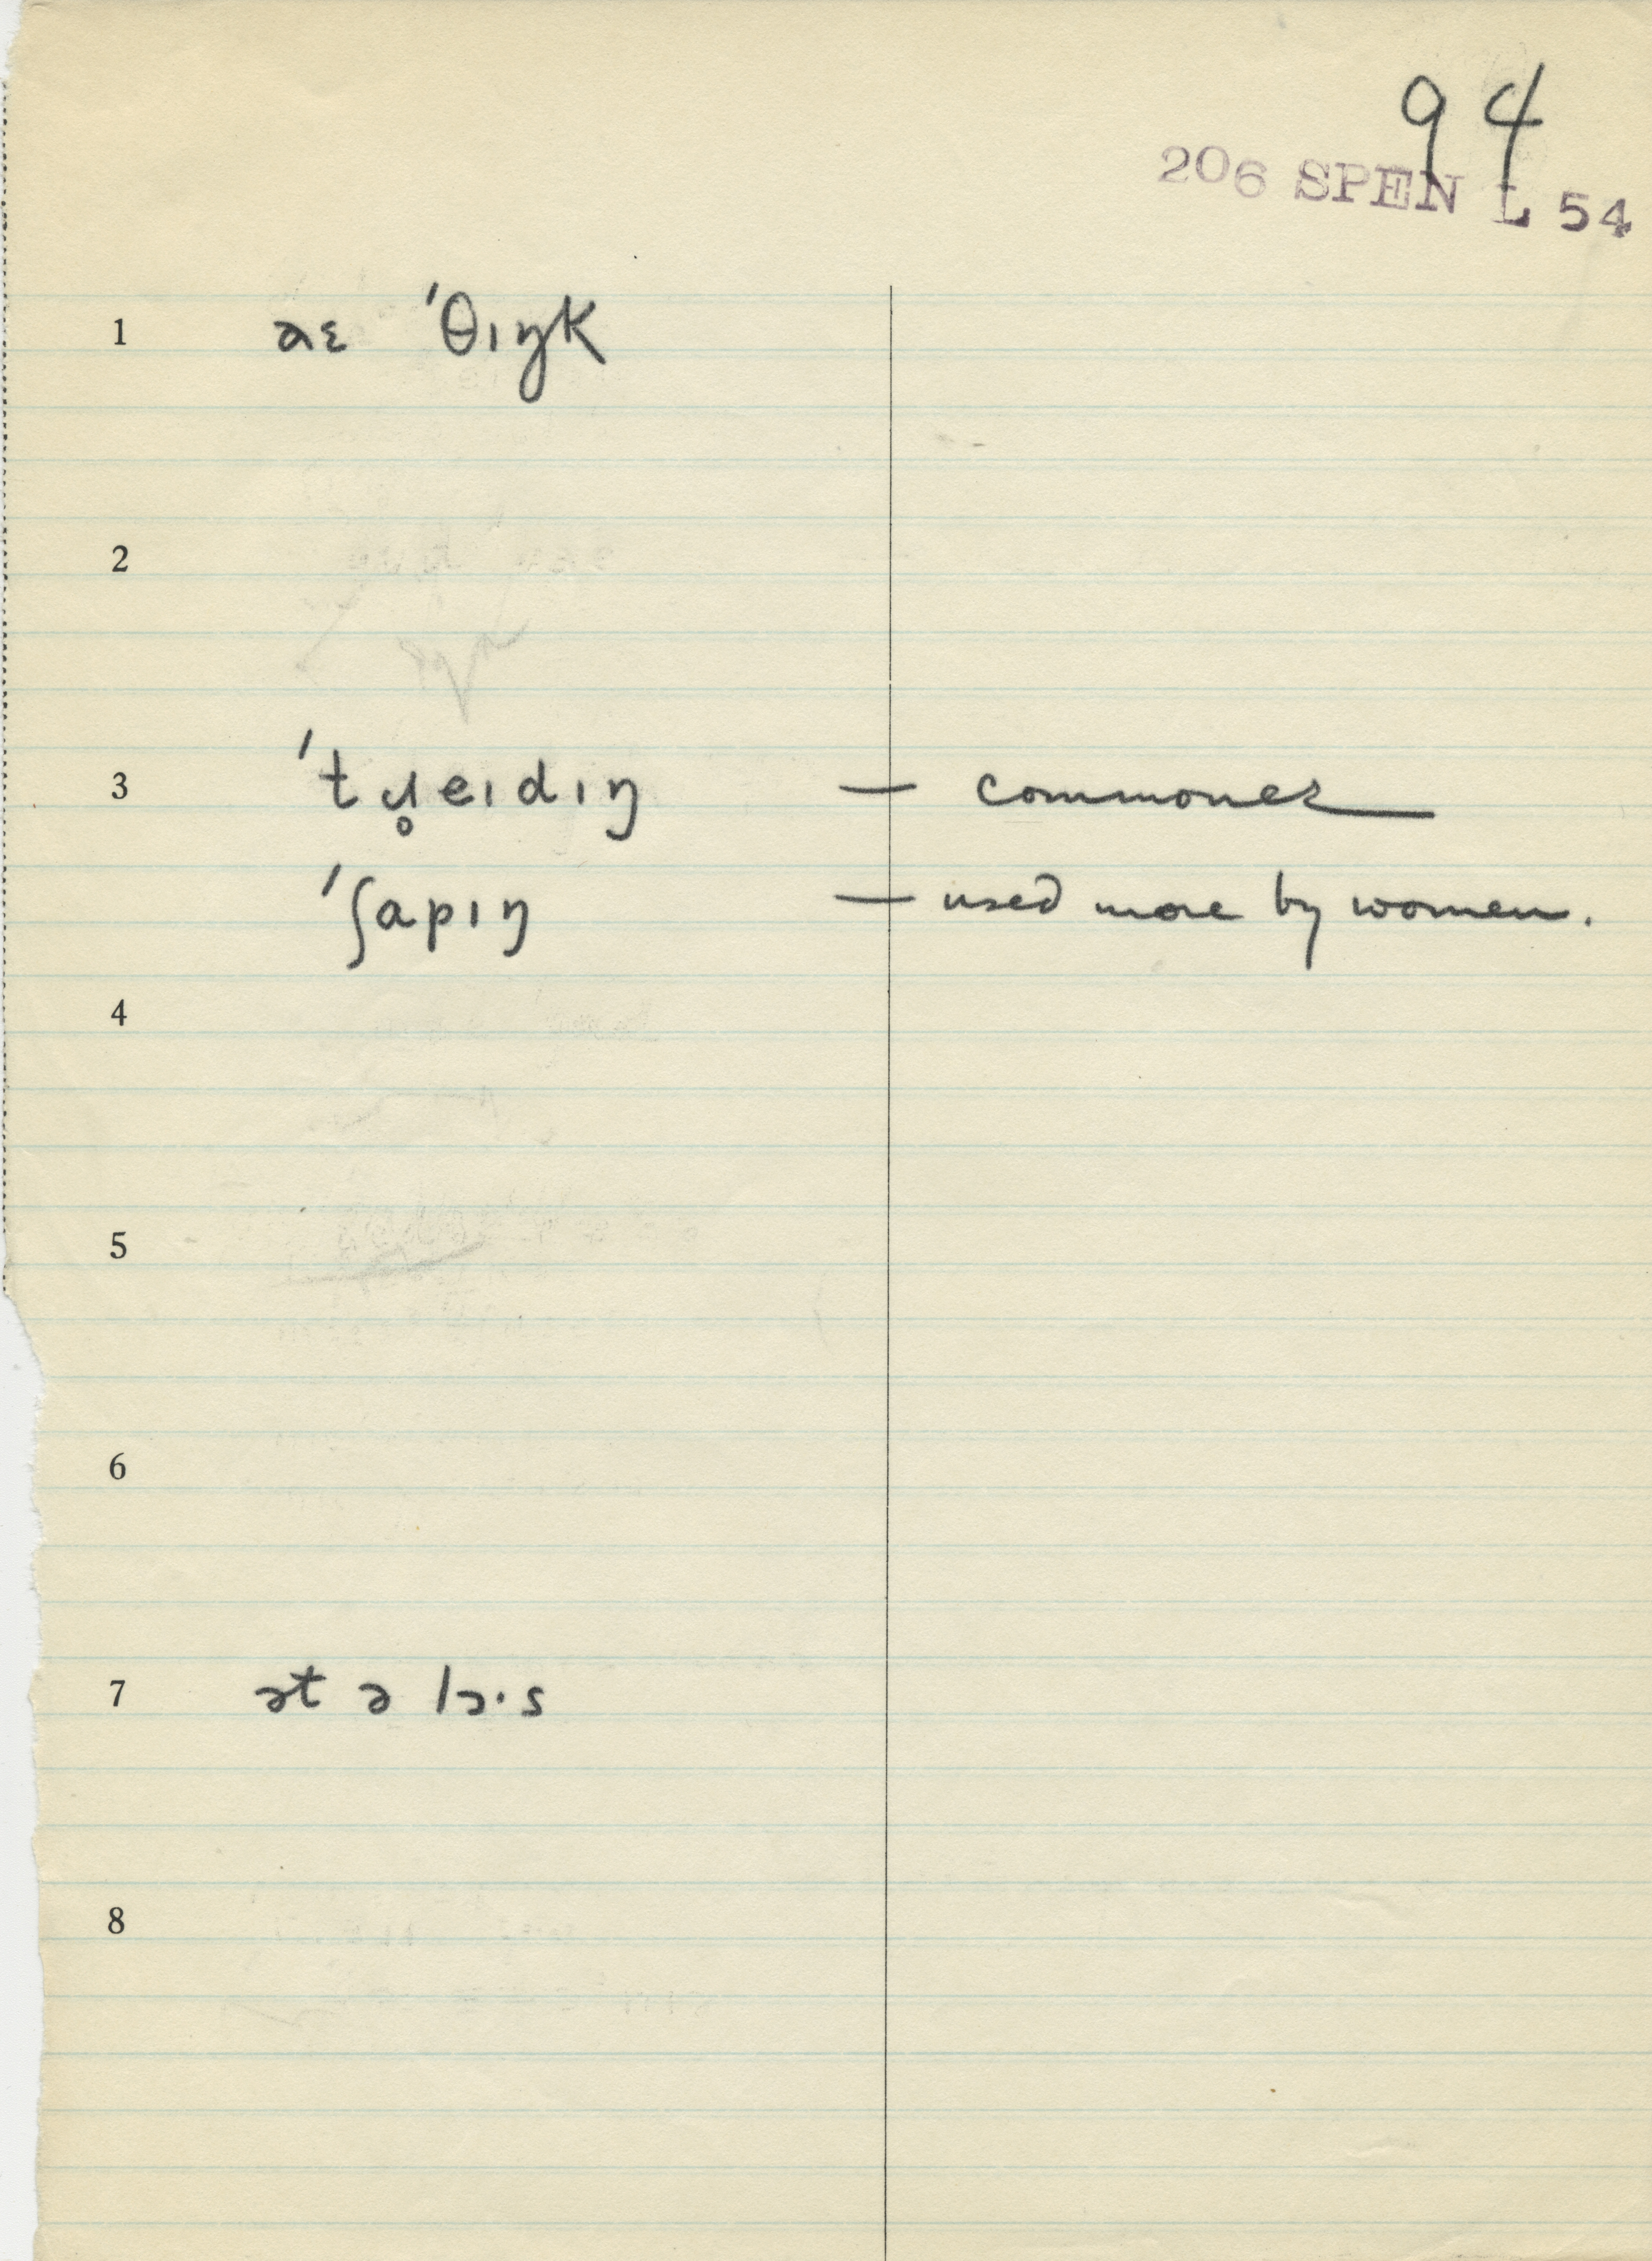 94
206 SPEN L 54
1 aɛ ˈθɪŋk
2
3 ˈtɹ̥eɪdɪŋ — commoner
ˈʃapɪŋ — used more by women.
4
5
6
7 ət ə lɔ·s
8